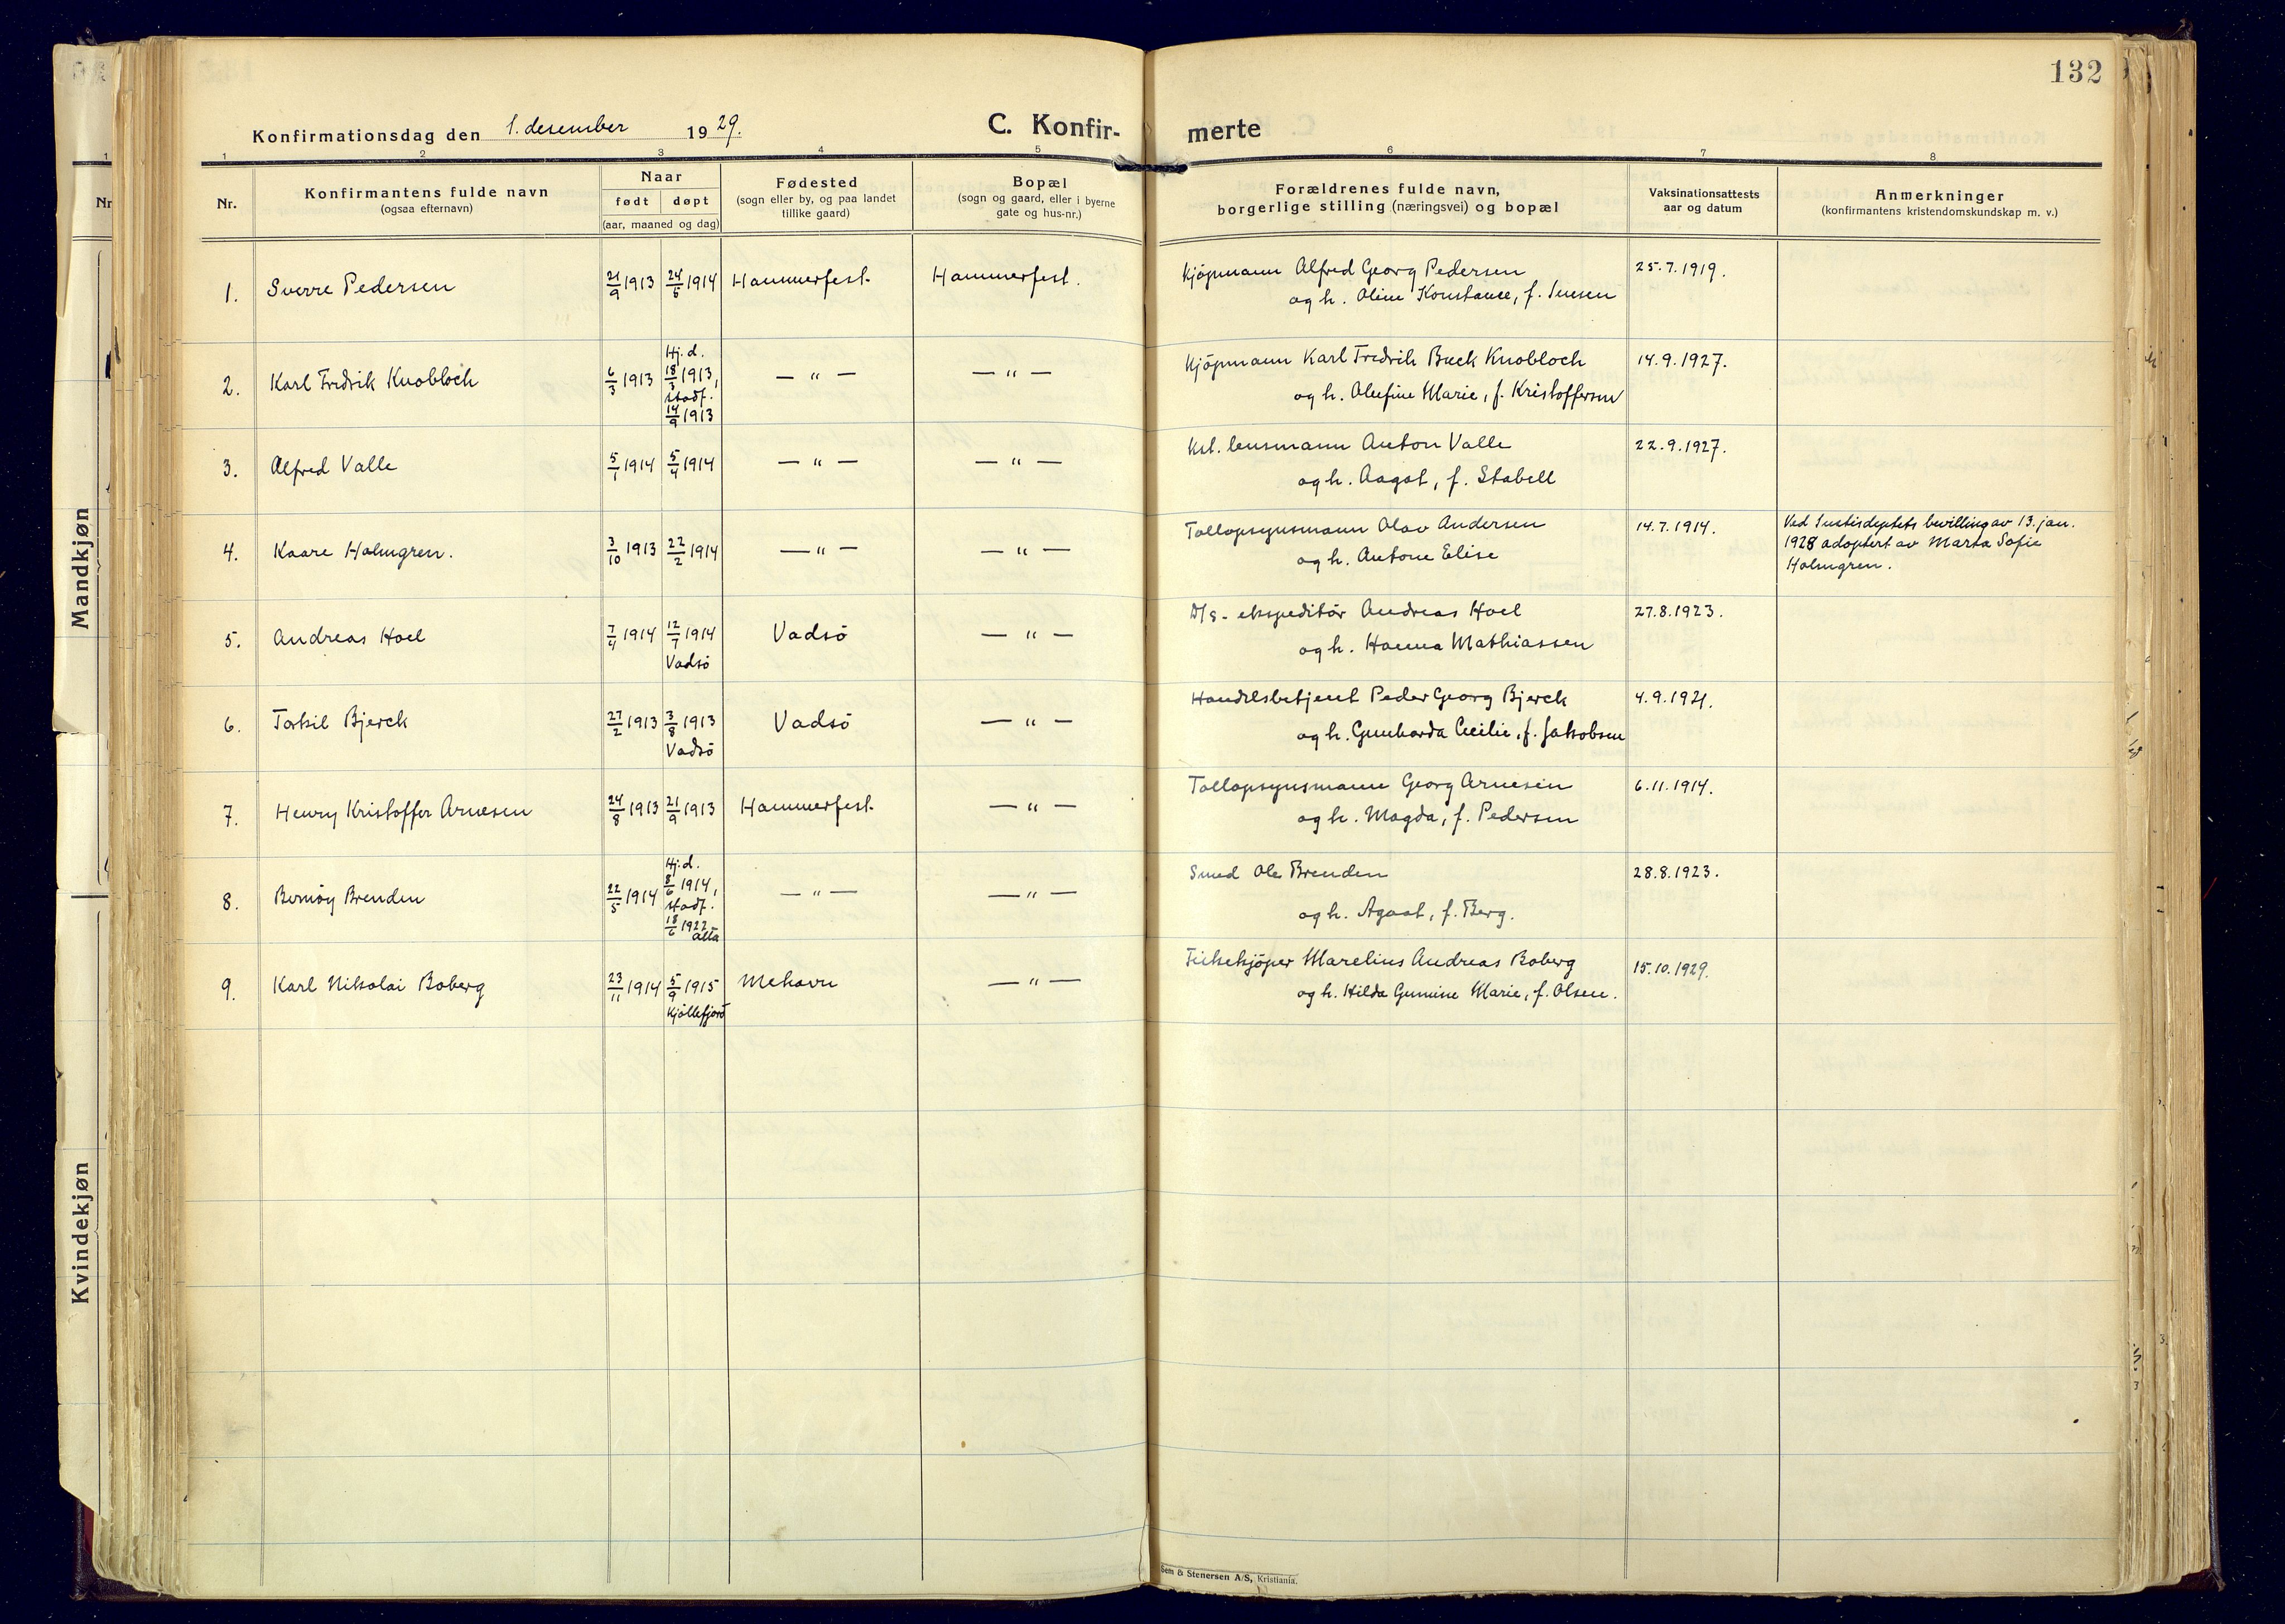 132
Konfirmationsdag den 1. desember 1929.
C. Konfirmerte
1 2 3 4 5 6 7 8
Nr.
Konfirmantens fulde navn
(ogsaa efternavn)
Naar
født døpt
(aar, maaned og dag)
Fødested
(sogn eller by, og paa landet
tillike gaard)
Bopæl
(sogn og gaard, eller i byerne
gate og hus-nr.)
Forældrenes fulde navn,
borgerlige stilling (næringsvei) og bopæl
Vaksinationsattests
aar og datum
Anmerkninger
(konfirmantens kristendomskundskap m. v.)
Mandkjøn
Kvindekjøn
1. Sverre Pedersen 21/9 1913 24/5 1914 Hammerfest. Hammerfest. Kjöpmann Alfred Georg Pedersen 25.7.1919.
og h. Oline Konstance, f.
2. Karl Fredrik Knobloch 6/3 1913 Hj. d. 18/3 1913, stadf. 14/9 1913 — " — — " — Kjöpmann Karl Fredrik Buck Knobloch 14.9.1927.
og h. Olufine Marie, f. Kristoffersen
3. Alfred Valle 5/1 1914 5/4 1914 — " — — " — Kst. lensmann Anton Valle 22.9.1927.
og h. Aagot, f. Stabell
4. Kaare Holmgren. 3/10 1913 22/2 1914 — " — — " — Tollopsynsmann Olav Andersen 14.7.1914. Ved Justisdeptets bevilling av 13. jan.
og h. Antone Elise 1928 adoptert av Marta Sofie
Holmgren.
5. Andreas Hoel 7/4 1914 12/7 1914 Vadsö Vadsö — " — D/S - ekspeditör Andreas Hoel 27.8.1923.
og h. Hanna Mathiassen
6. Torkil Bjerck 27/2 1913 3/8 1913 Vadsö Vadsö — " — Handelsbetjent Peder Georg Bjerck 4.9.1921.
og h. Gunharda Cecilie, f. Jakobsen
7. Henry Kristoffer Arnesen 24/8 1913 21/9 1913 Hammerfest. — " — Tollopsynsmann Georg Arnesen 6.11.1914.
og h. Magda, f. Pedersen
8. Bernöy Brenden 22/5 1914 Hj. d. 8/6 1914, stadf. 18/6 1922 Alta — " — — " — Smed Ole Brenden 28.8.1923.
og h. Agaat, f. Berg.
9. Karl Nikolai Boberg 23/11 1914 5/9 1915 Kjöllefjord Mehavn — " — Fiskekjöper Marelius Andreas Boberg 15.10.1929.
og h. Hilda Gunnine Marie, f. Olsen.
Sem & Stenersen A/S, Kristiania.